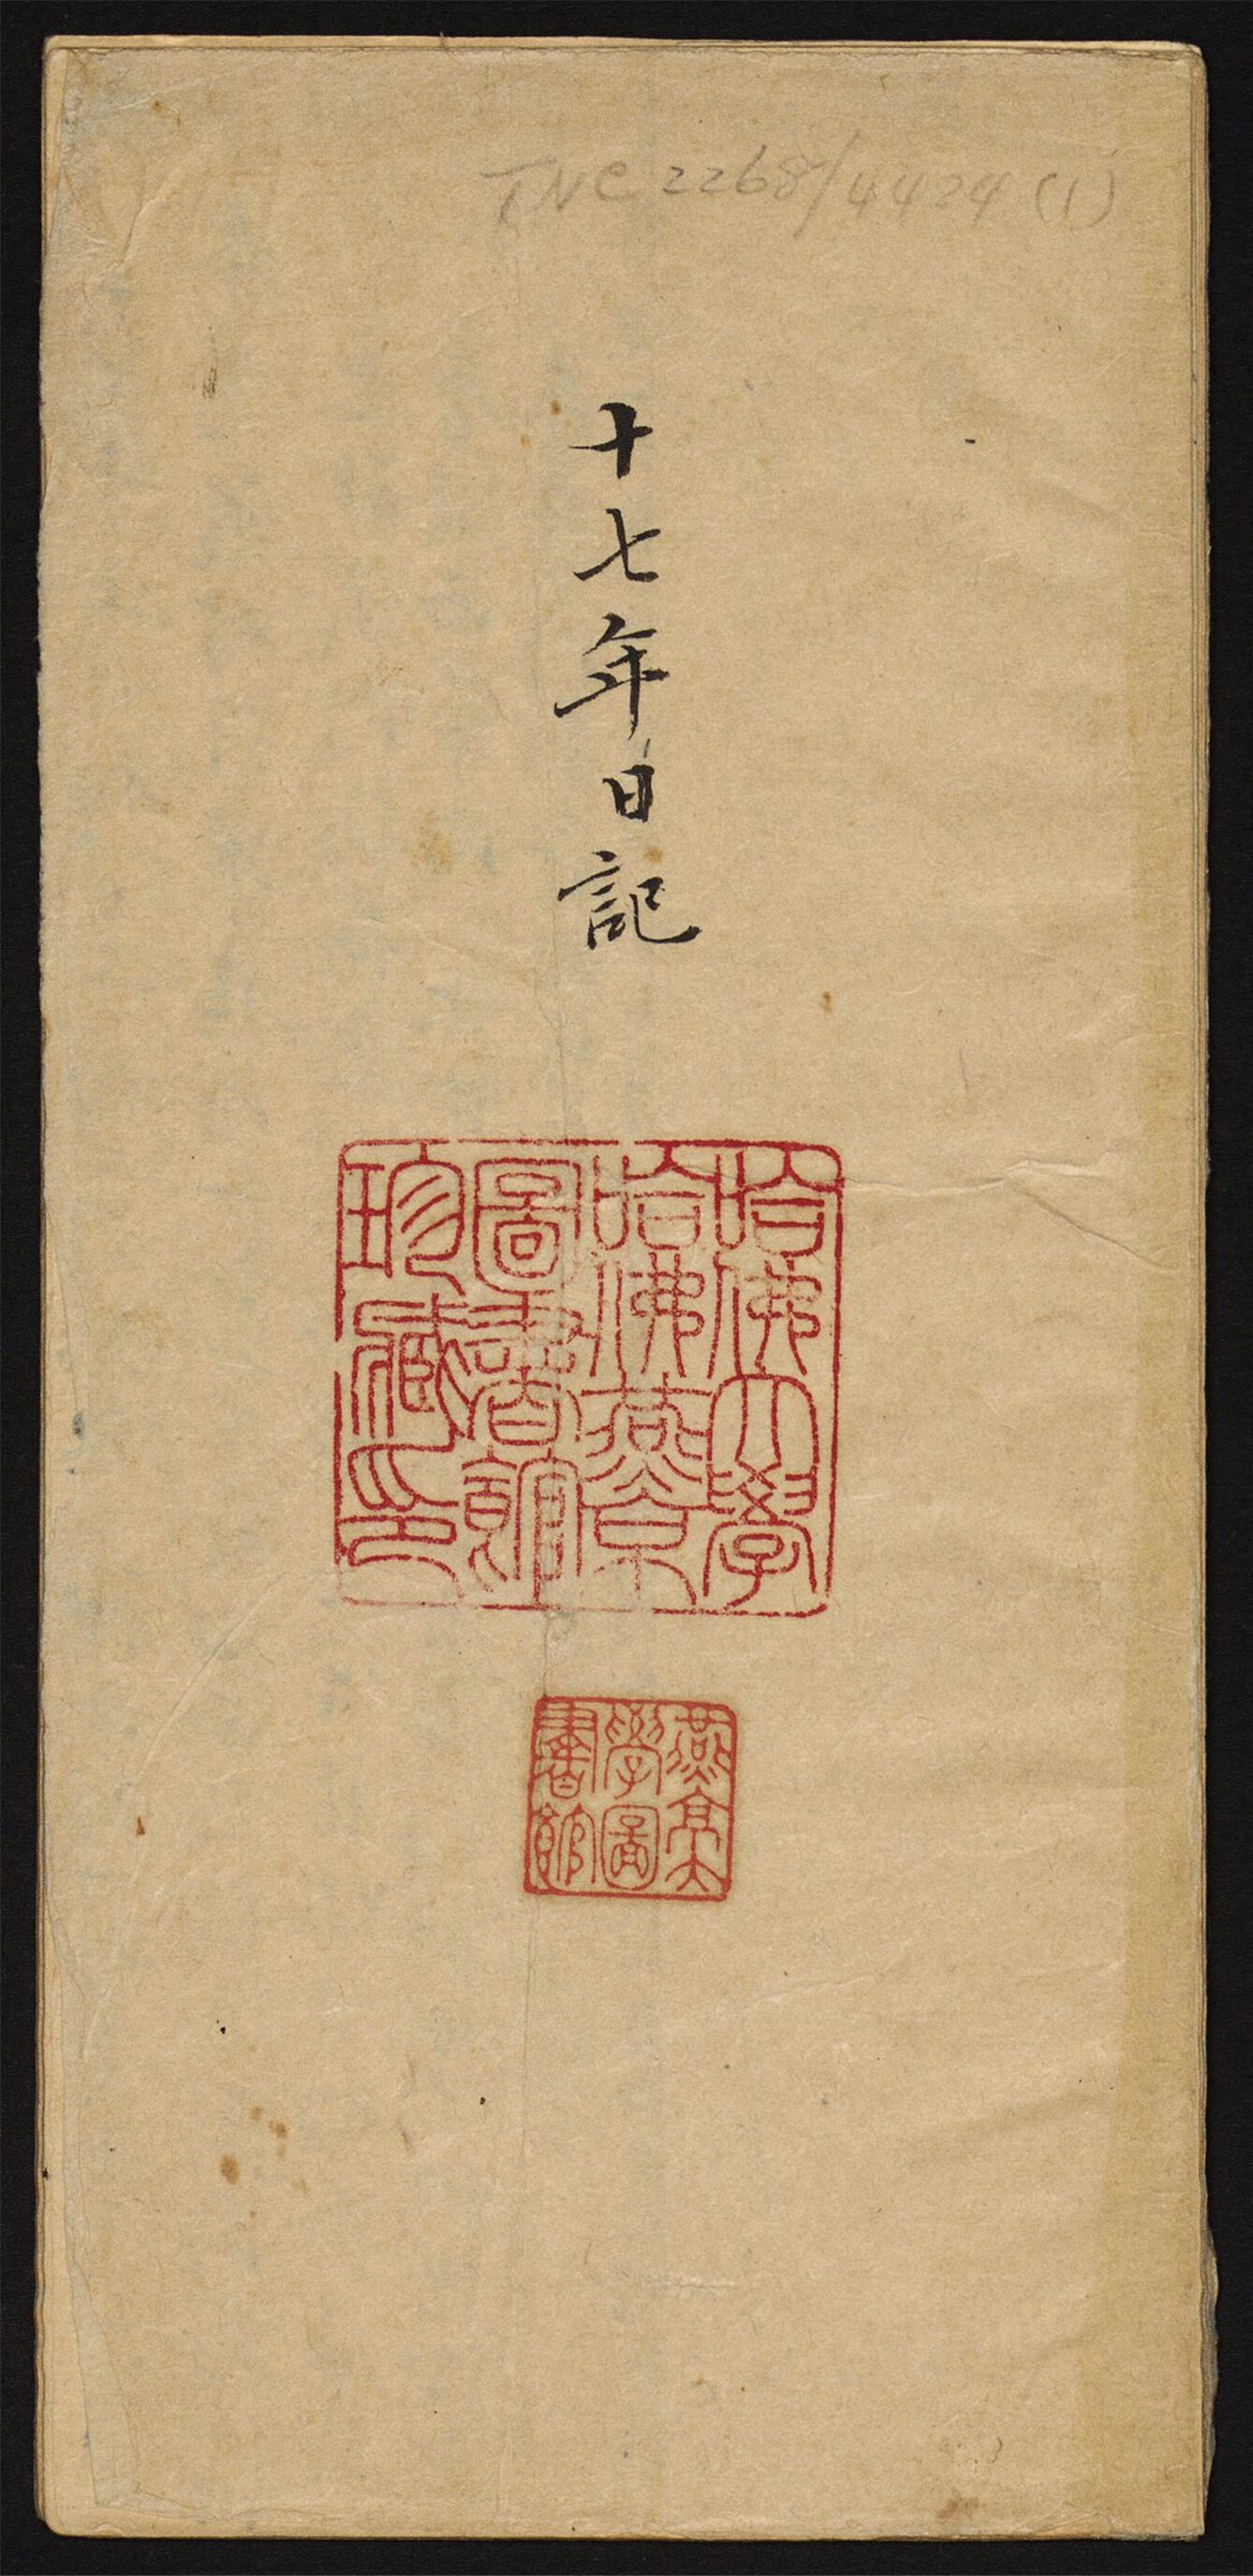 TNC 2268/4424 (1)
十七年日記
哈佛大學
哈佛燕京
圖書館
珍藏印
燕京大
學圖
書館